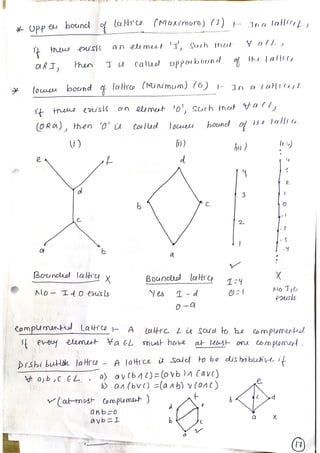 * Upper bound of lattice (Maximum) (I) :- In a lattice L,
if there exists an element 'I', such that ∀ a∈L,
aRI, then I is called upper bound of the lattice
* lower bound of lattice (Minimum) (O) :- In a lattice L
if there exists an element 'O', such that ∀ a∈L,
(ORa), then 'O' is called lower bound of the lattice
(i) (ii) (iii) (iv)
e f
d
c
a b
d
b c
a
4
3
2
1
4
3
2
1
0
-1
-2
-3
-4
Bounded lattice X
No- I d O exists
Bounded lattice
Yes I - d
O - a
✓
I=4
O=1
X
No I,O
exists
Complemented Lattice :- A lattice L is said to be complemented
if every element ∀a∈L must have at least one complement.
Distributive lattice - A lattice is said to be distributive if
∀ a,b,c ∈L. a) a∨(b∧c)=(a∨b)∧(a∨c)
b) a∧(b∨c)=(a∧b)∨(a∧c)
✓(at-most complement)
a∧b=0
a∨b=I
d e
b c
a ✓
e
b c d
a X
17